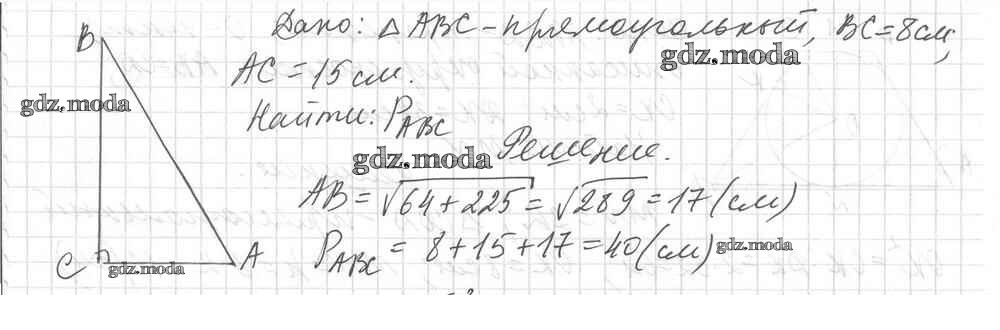 Дано: △ABC - прямоугольный, BC = 8 см,
gdz.moda
AC = 15 см.
B
gdz.moda
Найти: P_ABC
gdz.moda Решение.
AB = √64+225 = √289 = 17 (см)
P_ABC = 8+15+17 = 40 (см) gdz.moda
C gdz.moda A